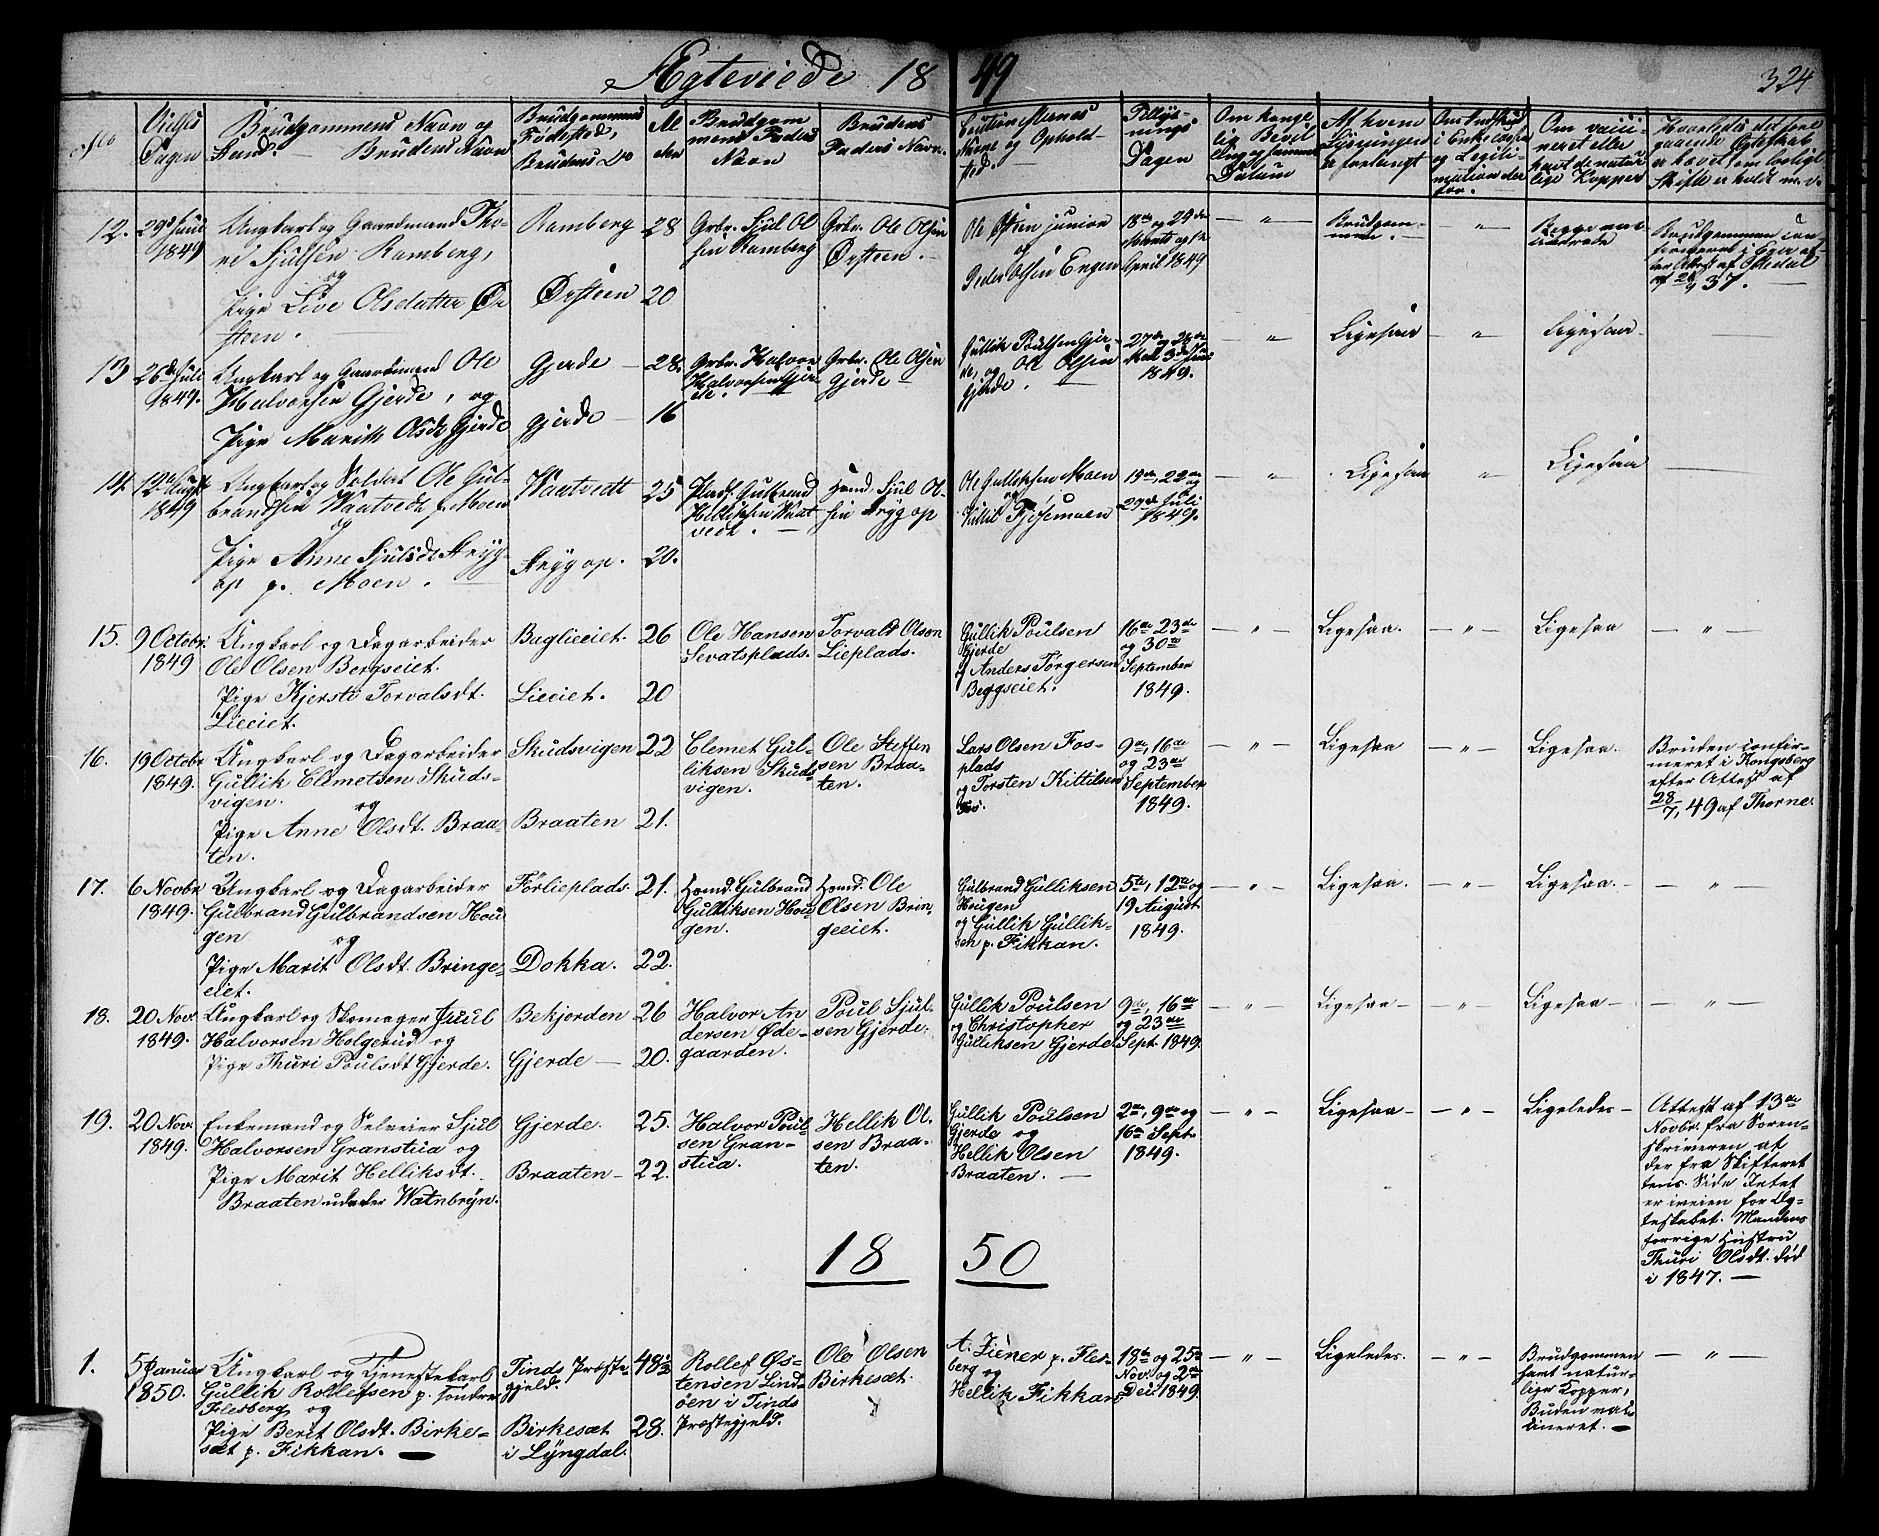 Ægteviede 1849
324
No
Vielses Dagen
Brudgommens Navn og Stand. — Brudens Navn
Brudgommens Fødested, Brudens Do
Alder
Brudgommens Faders Navn
Brudens Faders Navn.
Cautionisternes Navne og Opholdsted.
Tillysnings Dagen
Om kongelig Bevilling og sammes Datum
Af hvem Lysningen er forlangt
Om vaccineret eller havt de naturlige Kopper
12.
29de Juni 1849
Ungkarl og Gaardmand Tho-
re Sjulsen Ramberg,
og
Pige Live Olsdatter Ør-
steen.
Ramberg
Ørsteen
28
20
Grbr. Sjul Ol
sen Ramberg
Grbr. Ole Olsen
Ørsteen.
Ole Olsen junior
og
Peder Olsen Engen
18de og 29de
Marts og 
April 1849
— " —
Brudgom-
men.
— " —
Begge vac-
cinerede
Brudgommen con-
37.
13
26de Juli
1849.
Ungkarl og Gaardmand Ole
Halvorsen Gjerde, og
Pige Marith Olsdt Gjerde
Gjerde
Gjerde
28.
16
Grbr. Halvor
Halvorsen Gjer-
de.
Grbr. Ole Olsen
Gjerde
Gullik Poulsen Gjer-
de, og Ole Olsen
Gjerde.
27de og 28de
Mai 3de Juni
1849.
— " —
Ligesaa
— " —
Ligesaa
14
12te Augst
1849
Ungkarl og Soldat Ole Gul-
brandsen Waatvedt p. Moen
og
Pige Anne Sjulsdt Stryg-
op p. Moen.
Waatvedt
Strygop.
25
20.
Plads. Gulbrand
Helliksen Waat
vedt.
Hmd. Sjul Ol-
sen Strygop
Ole Gulliksen Moen
og
Kittil Fjøsemoen
19de, 22de og
29de Juli
1849.
— " —
Ligesaa
"
Ligesaa
15.
9 Octobr.
1849
Ungkarl og Dagarbeider
Ole Olsen Bergseiet.
Pige Kjersti Torvalsdt.
Lieeiet.
Baglieeiet.
Lieeiet.
26
20
Ole Hansen
Sevatsplads.
Torvald Olsen
Lieplads.
Gullik Poulsen
Gjerde
og Anders Törgersen
Beggseiet.
16de 23de
og 30te
September
1849.
— " —
Ligesaa.
— " —
Ligesaa
— " —
16.
19 Octobr
1849.
Ungkarl og Dagarbeider
Gullik Clemetsen Skuds-
vigen.
og
Pige Anne Olsdt. Braa-
ten.
Skudsvigen
Braaten
22
21.
Clemet Gul-
liksen Skuds-
vigen.
Ole Steffen
sen Braa-
ten.
Lars Olsen Fos-
plads
og Torsten Kittilsen
9de, 16de
og 23de
September
1849.
— " —
Ligesaa
— " —
Ligesaa.
Bruden confir-
meret i Kongsberg
efter Attest af
28/7, 49 af Thorne.
17.
6 Novbr
1849.
Ungkarl og Dagarbeider
Gulbrand Gulbrandsen Hou-
gen
og
Pige Marit Olsdt. Bringe-
eiet.
Förlieplads.
Dokka.
21.
22.
Hmd. Gulbrand
Gulliksen Hou-
gen.
Hmd. Ole
Olsen Brin-
geeiet.
Gulbrand Gulliksen
Hougen
og Gullik Gullik-
sen p. Fikkan.
5te, 12te og
19 August
1849.
— " —
Ligesaa.
— " —
Ligesaa.
— " —
18.
20 Nov.
1849.
Ungkarl og Skomager Juul
Halvorsen Holgerud og
Pige Thuri Poulsdt Gjerde.
Bekjorden
Gjerde
26
20.
Halvor An
dersen Øde-
gaarden.
Poul Sjul-
sen Gjerde.
Gullik Poulsen
og Christopher
Gulliksen Gjerde
9de, 16de
og 23de
Sept. 1849.
— " —
Ligesaa
— " —
Ligesaa
— " —
19.
20 Nov.
1849.
Enkemand og Selveier Sjul
Halvorsen Granstua og
Pige Marit Helliksdt.
Braaten Watnbryn.
Gjerde.
Braaten
25.
22.
Halvor Poul-
sen Gran-
stua.
Hellik Ol-
sen Braa-
ten.
Gullik Poulsen
Gjerde og
Hellik Olsen
Braaten.
2de, 9de og
16de Sept.
1849.
— " —
Ligesaa
— " —
Ligeledes
Attest af 13de
Novbr. fra Soren-
skriveren at
der fra Skifteret
tens Side Intet
er iveien for Æg-
teskabet. Mandens
forrige Hustru
Thuri Olsdt. död
i 1847.
1850
1.
5 Januar
1850.
Ungkarl og Tjenestekarl
Gullik Rollefsen p. Söndre
Flesberg og
Pige Berit Olsdt. Birke-
sæt p. Fikkan.
Tinds Præste-
gjeld.
Birkesæt
i Lyngdal.
48½
28.
Rollef Øs-
tensen Lind-
öen i Tinds
Præstegjeld.
Ole Olsen
Birkesæt.
A. Ziener p. Fles-
berg og
Hellik Fikkan
18de og 25de
Nov. og 2de
Dec. 1849.
— " —
Ligeledes.
— " —
Brudgommen
havt natur-
lige Kopper,
Buden vac-
cineret.
— " —